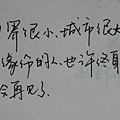 界很小,城市很大
缘份的人,也许终
会再见了.